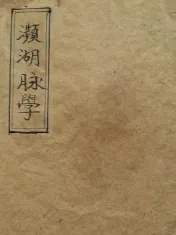 瀕湖脉學